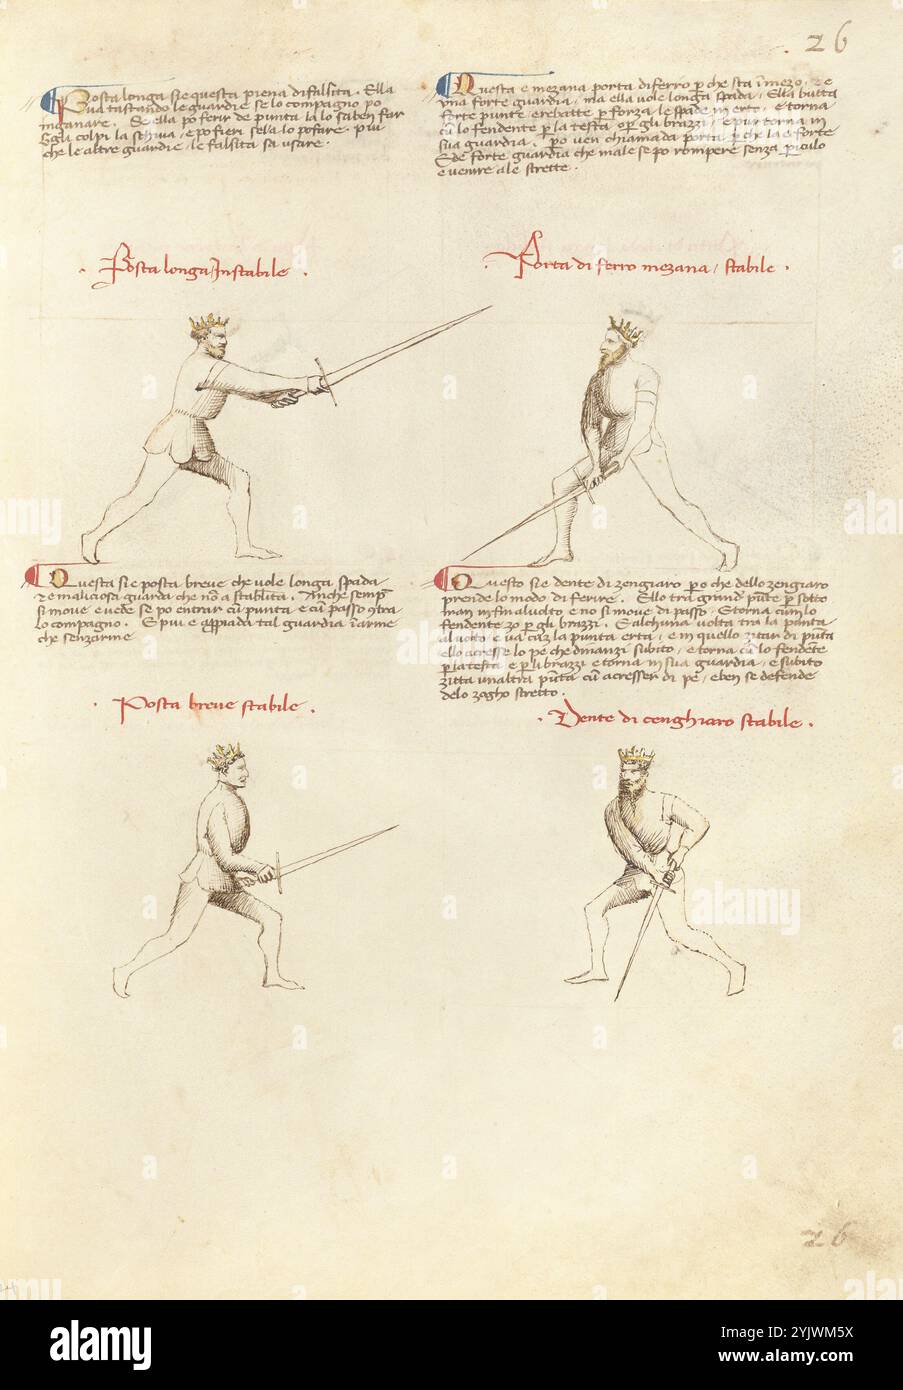 26
Posta longa sie questa piena di falsita. Ella
va tastando le guardie se lo compagno po
inganare. Se ella po ferir de punta la lo sa ben far
E gli colpi la schiva, e po fieri se la lo po fare. piu
che le altre guardie, le falsita sa usare.
Posta longa, Instabile.
Questa e mezana porta di ferro p che sta i mezo, e e
una forte guardia, ma ella vole longa spada, Ella butta
forte punte, e rebatte p forza le spade in erto, e torna
cu lo fendente p la testa o p gli brazzi, e pur torna in
sua guardia. po ven chiamada porta, p che la e forte
E de forte guardia che male se po rompere senza piculo
e venire a le strette.
Porta di ferro mezana, stabile.
Questa sie posta breve che vole longa spada
e e maliciosa guarda che no a stabilita. Anche semp
si move e vede se po entrar cu punta e cu passo
lo compagno. E piu e apiada tal guardia i arme
che senz arme
Posta breve stabile.
Questo sie dente di zengiaro, p o che dello zengiaro
prende lo modo di ferire. Ello tra grand pute p sotto
man in fin al volto e no si move di passo, E torna cu lo
fendente zo p gli brazzi. E alchuna volta tra la punta
al volto e va cu la punta erta, e in quello zitar di puta
ello acresse lo pe che dinanzi subito, e torna cu lo fendete
p la testa e p li brazzi e torna in sua guardia, e subito
zitta un altra puta cu acresser di pe, e ben se defende
delo zogho stretto.
Dente di cenghiaro stabile.
26
alamy
Image ID: 2YJWM5X
www.alamy.com